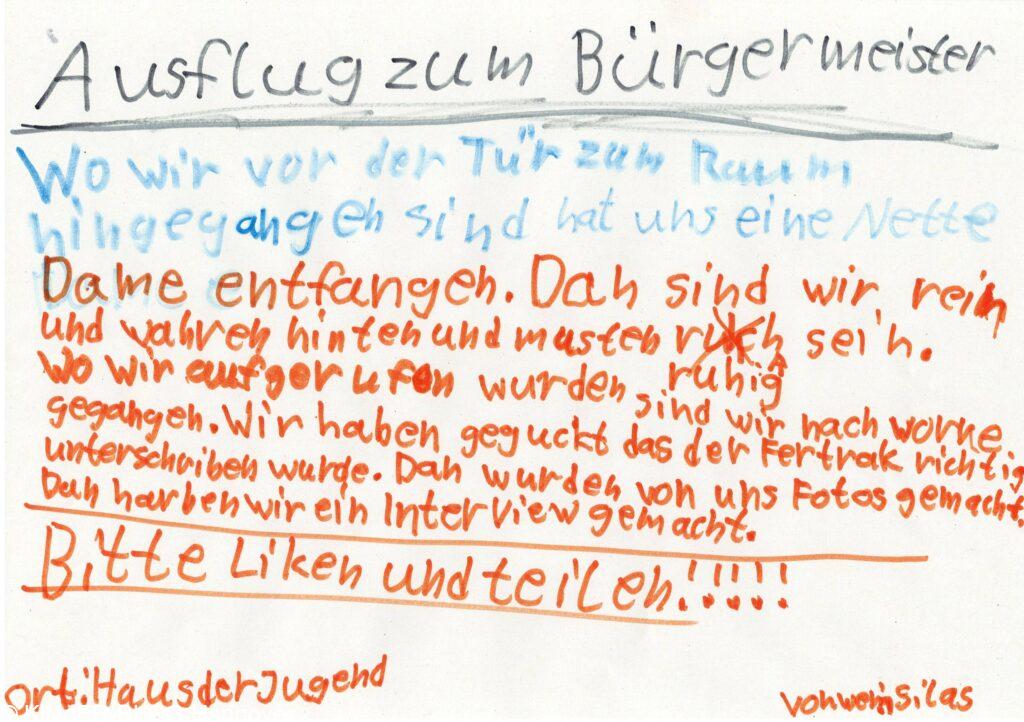 Ausflug zum Bürgermeister
Wo wir vor der Tür zum Raum
hingegangen sind hat uns eine Nette
Dame entfangen. Dan sind wir rein
und wahren hinten und musten sein.
ruhig
Wo wir aufgerufen wurden sind wir nach worne
gegangen. Wir haben geguckt das der Fertrak richtig
unterschriben wurde. Dan wurden von uns Fotos gemacht.
Dan harben wir ein Interview gemacht.
Bitte Liken und teilen!!!!!!
Ort: Haus der Jugend
von wem: silas